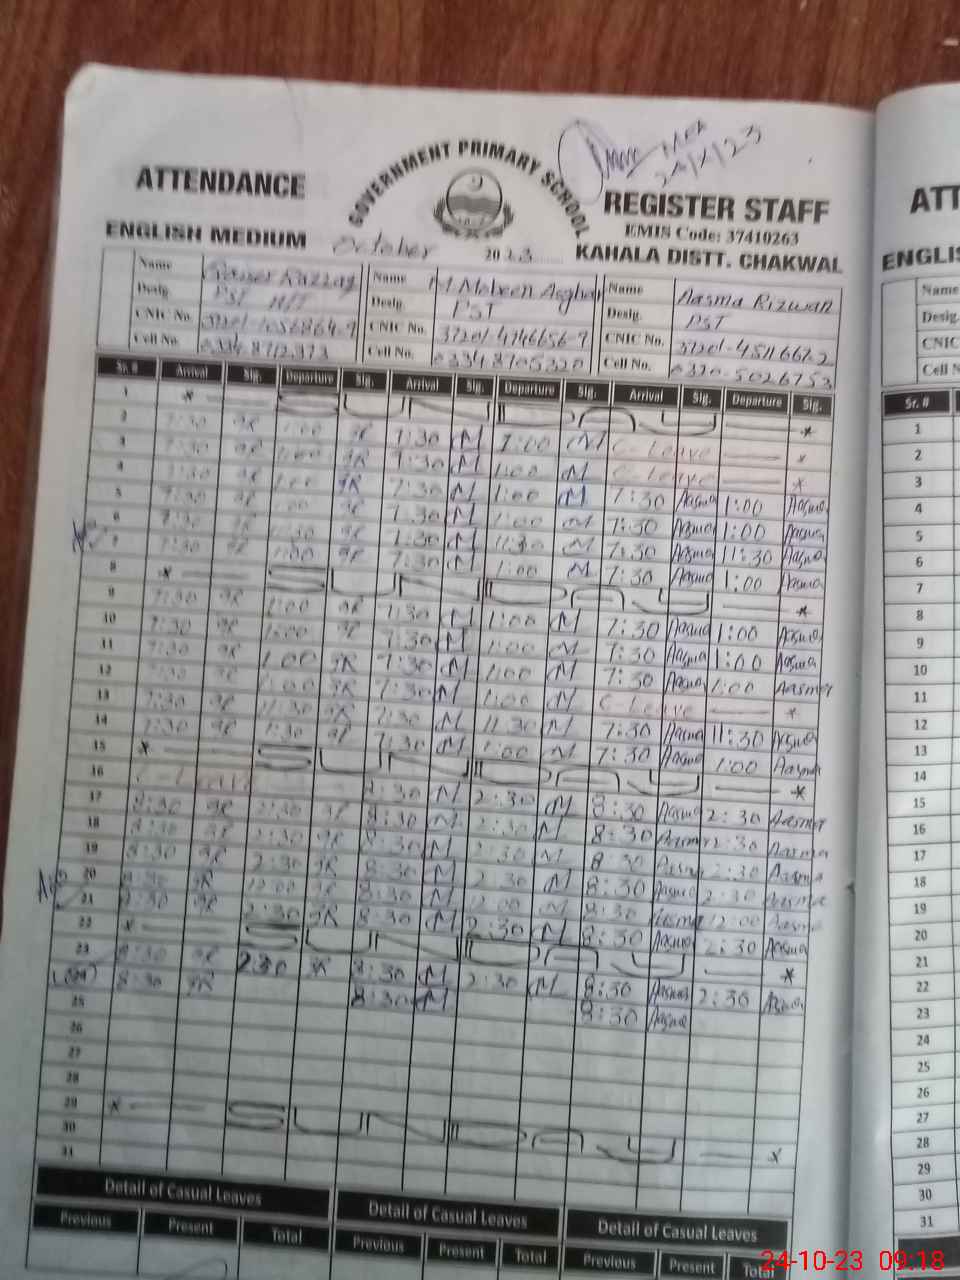 MEA
ATTENDANCE
GOVERNMENT PRIMARY SCHOOL
REGISTER STAFF
EMIS Code: 37410263
ENGLISH MEDIUM
October 2023
KAHALA DISTT. CHAKWAL
Name Name M. Mobeen Asghar Name Aasma Rizwan
Desig. PST Desig. PST Desig. PST
CNIC No. CNIC No. 37201-4746656-9 CNIC No.
Cell No. Cell No. 03348705320 Cell No. 0370-5026753
Sr. # Arrival Sig. Departure Sig. Arrival Sig. Departure Sig. Arrival Sig. Departure Sig.
1 *
2 7:30 1:00 7:30 M 1:00 M C-Leave *
3 7:30 1:00 7:30 M 1:00 M C-Leave *
4 7:30 1:00 7:30 M 1:00 M 7:30 Aasma 1:00 Aasma
5 7:30 1:00 7:30 M 1:00 M 7:30 Aasma 1:00 Aasma
6 7:30 11:30 7:30 M 11:30 M 7:30 Aasma 11:30 Aasma
7 7:30 1:00 7:30 M 1:00 M 7:30 Aasma 1:00 Aasma
8 * *
9 7:30 1:00 7:30 M 1:00 M 7:30 Aasma 1:00 Aasma
10 7:30 1:00 7:30 M 1:00 M 7:30 Aasma 1:00 Aasma
11 7:30 1:00 7:30 M 1:00 M 7:30 Aasma 1:00 Aasma
12 7:30 1:00 7:30 M 1:00 M C-Leave *
13 7:30 11:30 7:30 M 11:30 M 7:30 Aasma 11:30 Aasma
14 7:30 1:30 7:30 M 1:00 M 7:30 Aasma 1:00 Aasma
15 * *
16 C-Leave 8:30 M 2:30 M 8:30 Aasma 2:30 Aasma
17 8:30 2:30 8:30 M 2:30 M 8:30 Aasma 2:30 Aasma
18 8:30 2:30 8:30 M 2:30 M 8:30 Aasma 2:30 Aasma
19 8:30 2:30 8:30 M 2:30 M 8:30 Aasma 2:30 Aasma
20 8:30 12:00 8:30 M 12:00 M 8:30 Aasma 12:00 Aasma
21 8:30 2:30 8:30 M 2:30 M 8:30 Aasma 2:30 Aasma
22 * *
23 8:30 2:30 8:30 M 2:30 M 8:30 Aasma 2:30 Aasma
24 8:30 8:30 M 8:30 Aasma
25
26
27
28
29 * *
30
31
Detail of Casual Leaves Detail of Casual Leaves Detail of Casual Leaves
Previous Present Total Previous Present Total Previous Present Total
ATT
ENGLIS
Name
Desig.
CNIC
Cell N
Sr. #
1
2
3
4
5
6
7
8
9
10
11
12
13
14
15
16
17
18
19
20
21
22
23
24
25
26
27
28
29
30
31
24-10-23 09:18